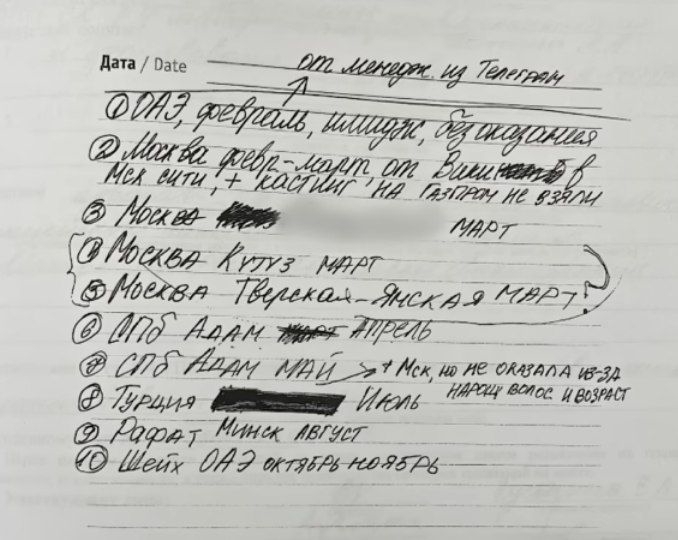 Дата / Date от менедж. из Телеграм
① ОАЭ, февраль, имидж, без оказания
② Москва февр-март, от Вики в
Мск сити, + кастинг на ГАЗПРОМ НЕ ВЗЯЛИ
③ Москва МАРТ
④ Москва Кутуз МАРТ
⑤ Москва Тверская-Ямская МАРТ
⑥ СПб АДАМ АПРЕЛЬ
⑦ СПб АДАМ МАЙ → + Мск, но НЕ ОКАЗАЛА ИЗ-ЗА
НАРОЩ ВОЛОС И ВОЗРАСТ
⑧ Турция Июль
⑨ Рафат Минск АВГУСТ
⑩ Шейх ОАЭ ОКТЯБРЬ-НОЯБРЬ